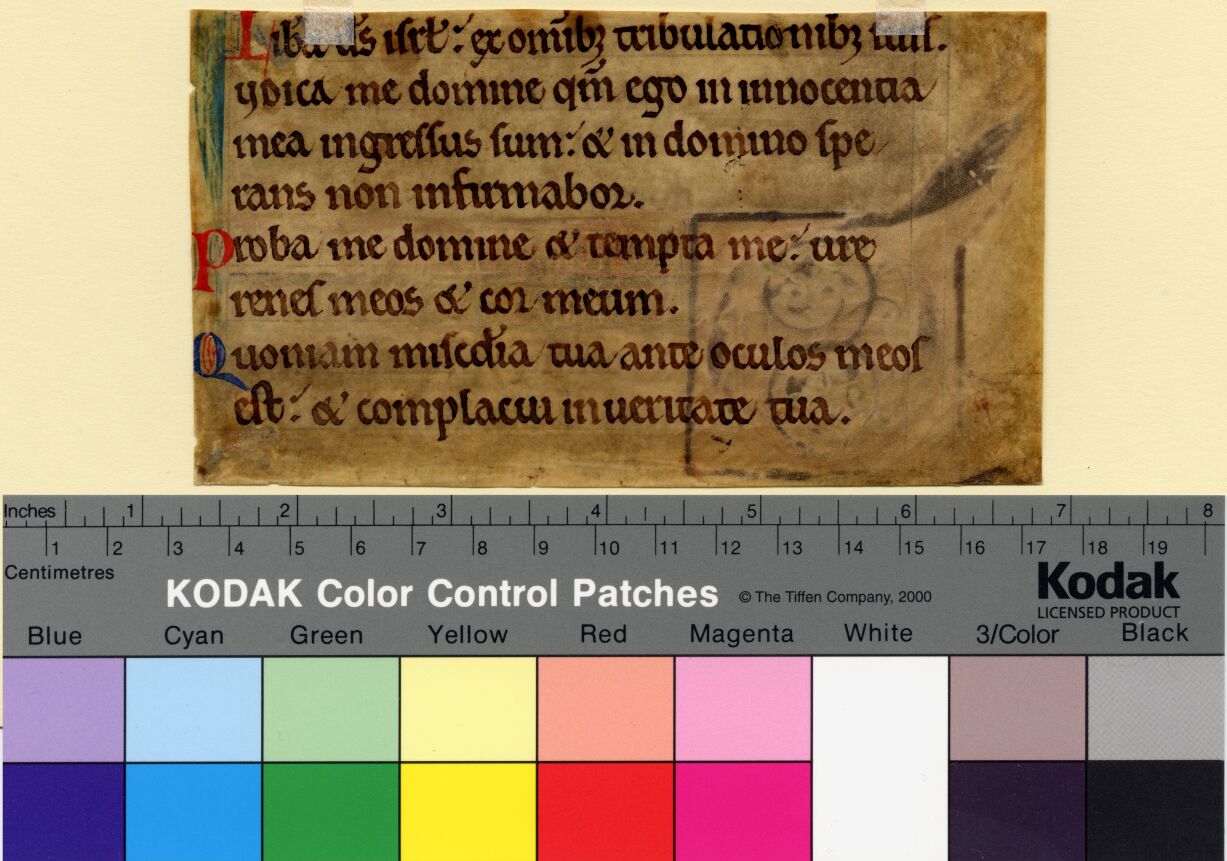 Liba ds isrl: ex omibꝫ tribulationibꝫ suis.
ydica me domine qm̄ ego in innocentia
mea ingressus sum: & in domino spe
rans non infirmabor.
Proba me domine & tempta me: ure
renes meos & cor meum.
Quoniam misc̄dia tua ante oculos meos
est: & complacui in ueritate tua.
Inches 1 2 3 4 5 6 7 8
1 2 3 4 5 6 7 8 9 10 11 12 13 14 15 16 17 18 19
Centimetres
KODAK Color Control Patches © The Tiffen Company, 2000 Kodak
LICENSED PRODUCT
Blue Cyan Green Yellow Red Magenta White 3/Color Black